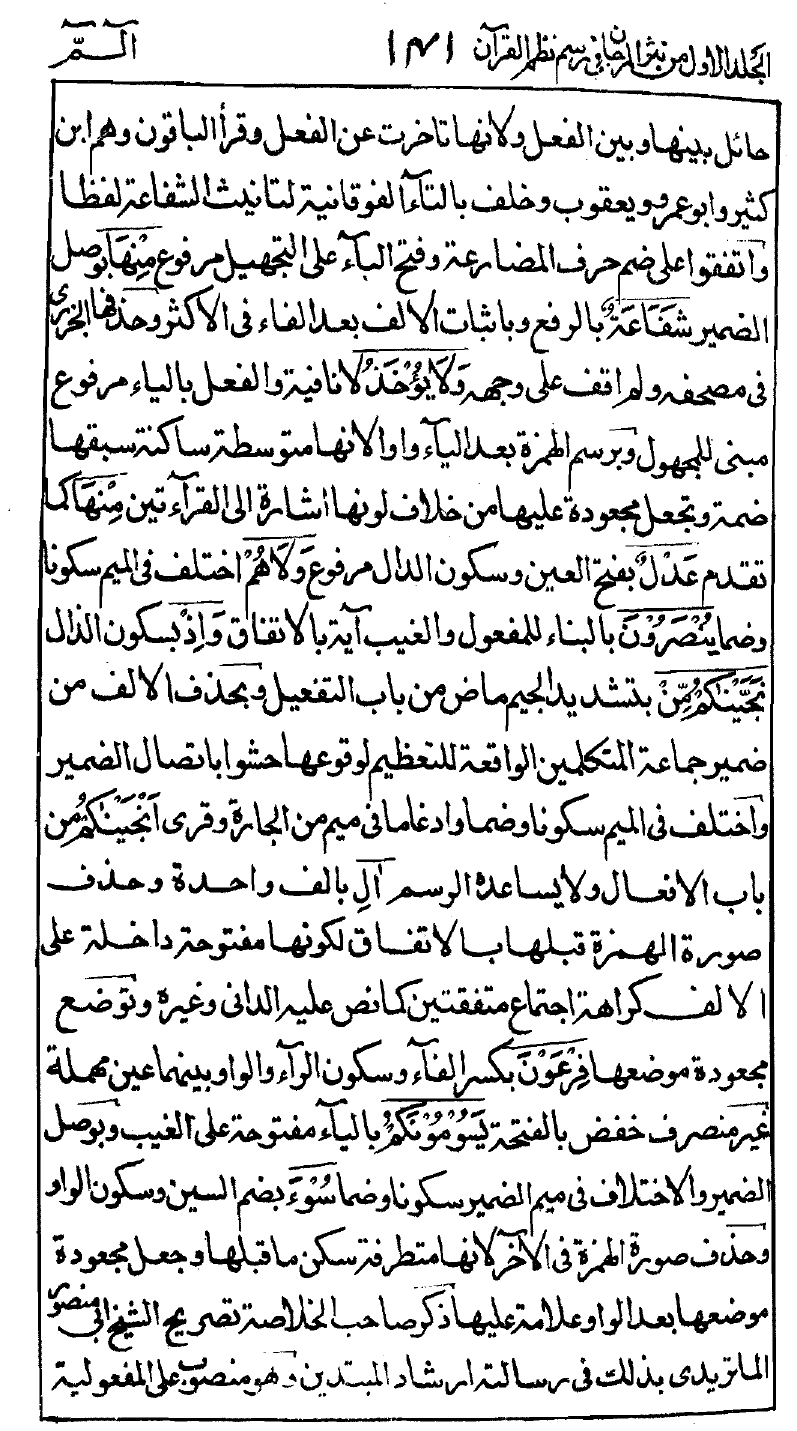 الجلد الاول من نثر المرجان في رسم نظم القرآن ١٤١ الٓمّٓ
حائل بينها وبين الفعل ولانها تاخرت عن الفعل وقرأ الباقون وهم ابن
كثير وابو عمرو ويعقوب وخلف بالتآء الفوقانية لتانيث الشفاعة لفظا
واتفقوا على ضم حرف المضارعة وفتح البآء على التجهيل مرفوع مِنْهَا بوصل
الضمير شَفَاعَةٌ بالرفع وباثبات الالف بعد الفاء فى الاكثر وحذفها الجزرى
فى مصحفه ولم اقف على وجهه وَلَا يُؤْخَذُ لا نافية والفعل بالياء مرفوع
مبنى للمجهول وبرسم الهمزة بعد اليآء واوا لانها متوسطة ساكنة سبقها
ضمة وتجعل مجعودة عليها من خلاف لونها اشارة الى القرآءتين مِنْهَا كما
تقدم عَدْلٌ بفتح العين وسكون الدال مرفوع وَلَا هُمْ اختلف فى الميم سكونا
وضما يُنْصَرُوْنَ بالبناء للمفعول والغيب آية بالاتفاق وَاِذْ بسكون الذال
نَجَّيْنٰكُمْ مِّنْ بتشديد الجيم ماض من باب التفعيل وبحذف الالف من
ضمير جماعة المتكلمين الواقعة للتعظيم لوقوعها حشوا باتصال الضمير
واختلف فى الميم سكونا وضما وادغاما فى ميم من الجارة وقرى اَنْجَيْنٰكُمْ من
باب الافعال ولا يساعده الرسم اٰلِ بالف واحدة وحذف
صورة الهمزة قبلها بالاتفاق لكونها مفتوحة داخلة على
الالف كراهة اجتماع متفقتين كما نص عليه الدانى وغيره وتوضع
مجعودة موضعها فِرْعَوْنَ بكسر الفآء وسكون الرآء والواو بينهما عين مهملة
غير منصرف خفض بالفتحة يَسُوْمُوْنَكُمْ باليآء مفتوحة على الغيب وبوصل
الضمير والاختلاف فى ميم الضمير سكونا وضما سُوْءَ بضم السين وسكون الواو
وحذف صورة الهمزة فى الآخر لانها متطرفة سكن ما قبلها وجعل مجعودة
موضعها بعد الواو علامة عليها ذكر صاحب الخلاصة تصريح الشيخ ابى منصور
الماتريدى بذلك فى رسالته ارشاد المبتدين وهو منصوب على المفعولية